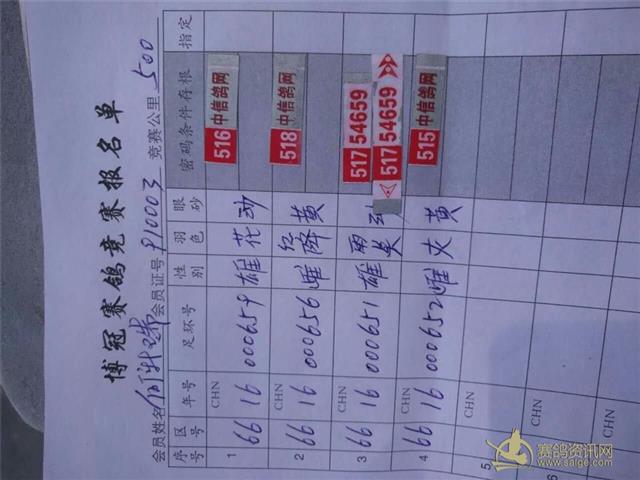 博冠赛鸽竞赛报名单
会员姓名 会员证号 910003 竞赛公里 500
序号 区号 年号 足环号 性别 羽色 眼砂 密码条件存根 指定
1 66 CHN 16 000659 雄 花 516 中信鸽网
2 66 CHN 16 000656 雌 红 黄 518 中信鸽网
3 66 CHN 16 000651 雄 雨 517 54659 517 54659
4 66 CHN 16 000652 雌 黄 515 中信鸽网
5 CHN
6 CHN
CHN
赛鸽资讯网
www.saige.com